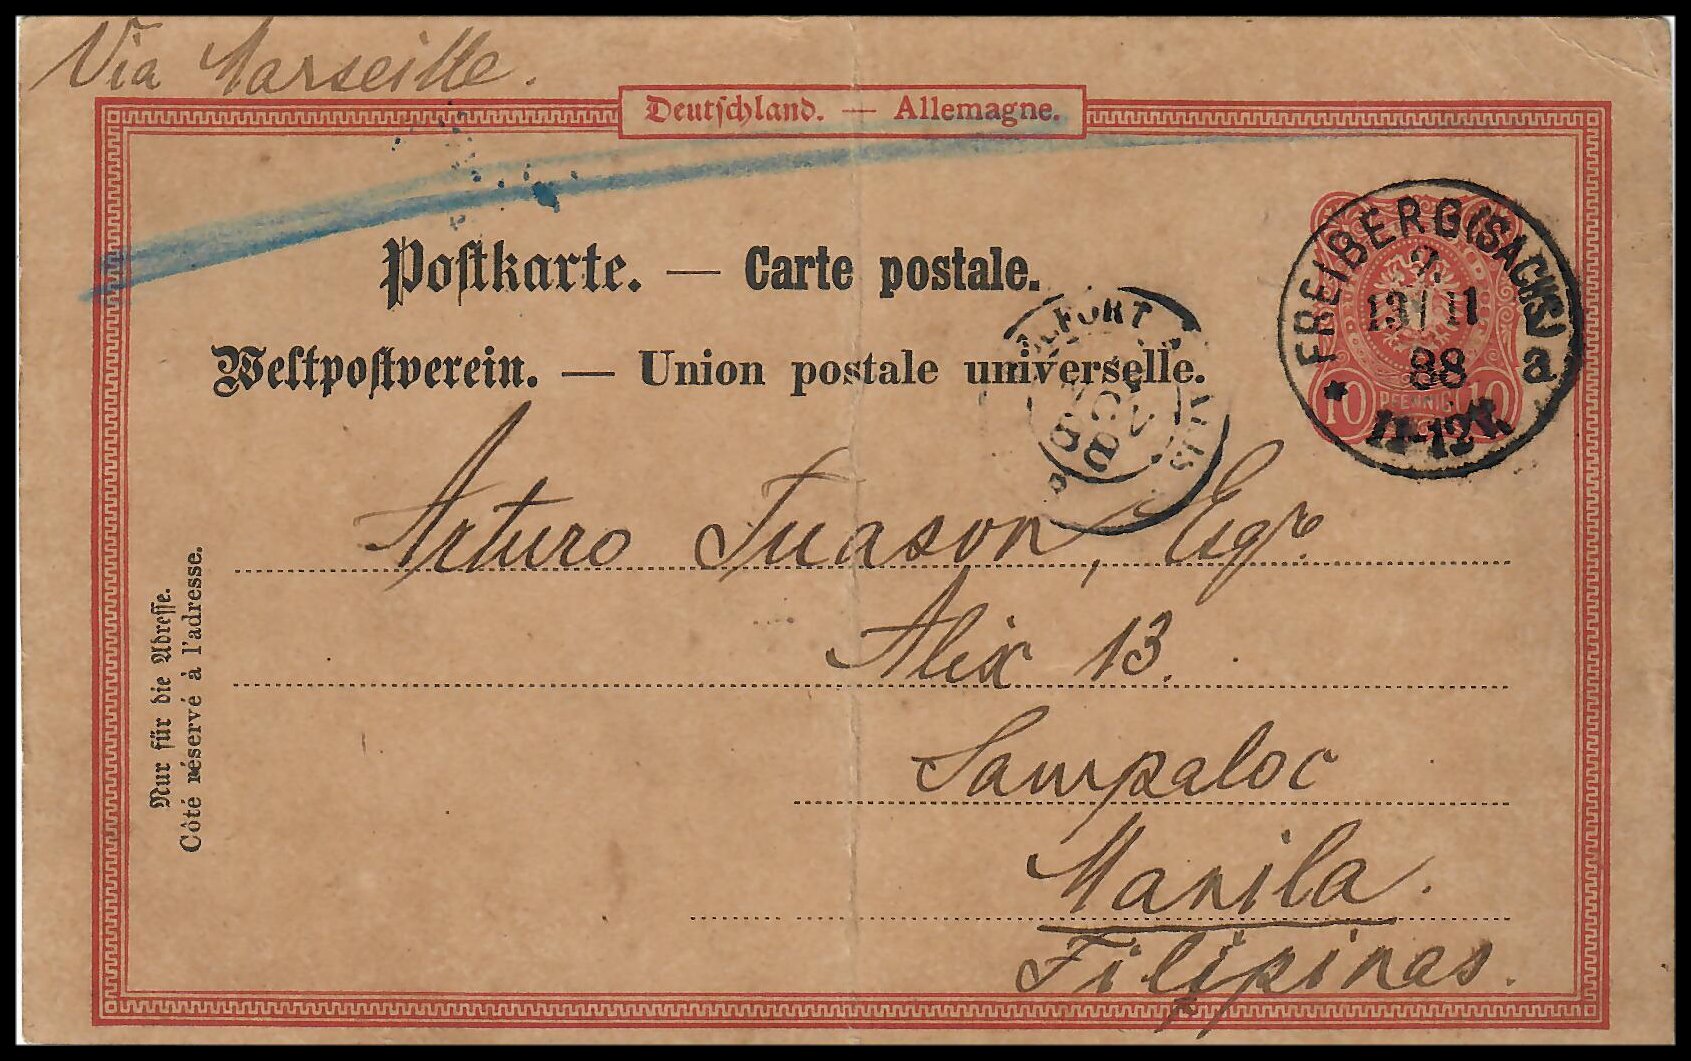 Via Marseille.
Deutschland. — Allemagne.
Postkarte. — Carte postale.
Weltpostverein. — Union postale universelle.
FREIBERG (SACHS)
13 11
88
a
11-12 V.
10 PFENNIG 10
88
Arturo Tuason, Esqre.
Alix 13.
Sampaloc
Manila.
Filipinas.
Nur für die Adresse.
Côté réservé à l'adresse.